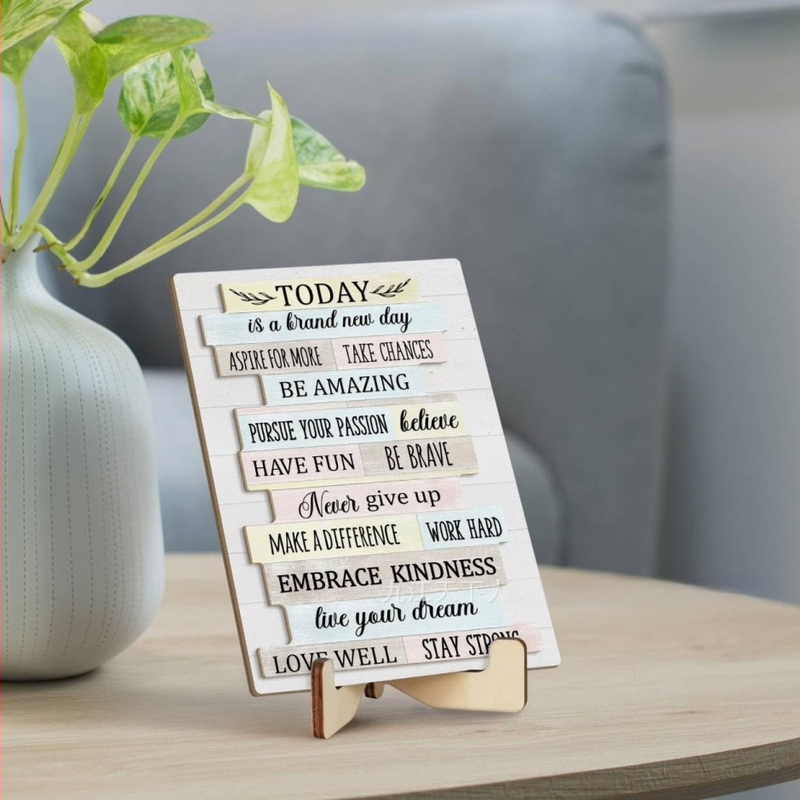 TODAY
is a brand new day
ASPIRE FOR MORE TAKE CHANCES
BE AMAZING
PURSUE YOUR PASSION believe
HAVE FUN BE BRAVE
Never give up
MAKE A DIFFERENCE WORK HARD
EMBRACE KINDNESS
live your dream
LOVE WELL STAY STRONG